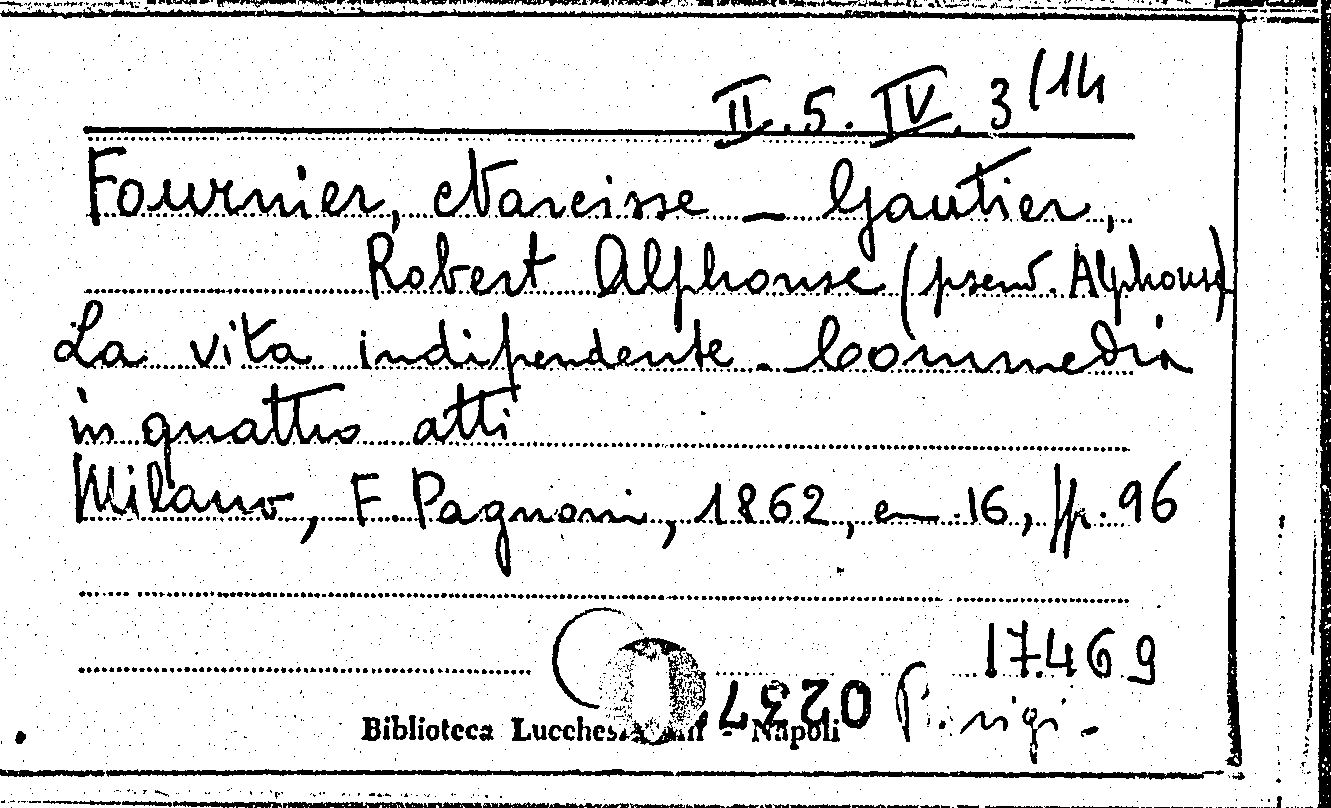 II.5.IV.3/14
Fournier, Narcisse – Gautier,
Robert Alphonse (pseud. Alphonse)
La vita indipendente. Commedia
in quattro atti
Milano, F. Pagnoni, 1862, in 16, pp. 96
17469
Biblioteca Lucchesi - Napoli